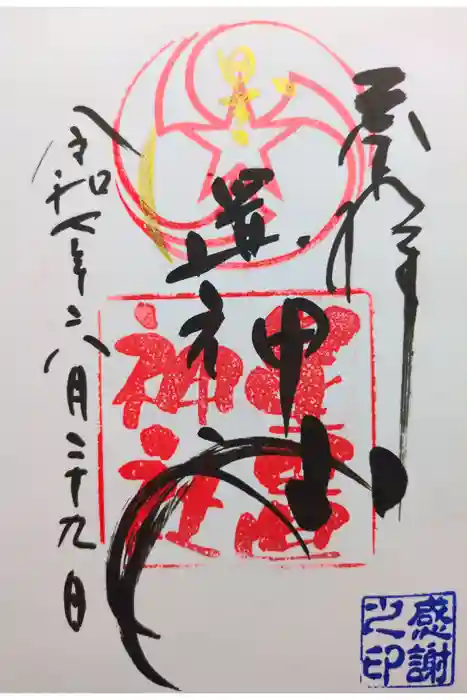 奉拝
置
神
星置
神社
令和七年八月二十九日
感謝
之印